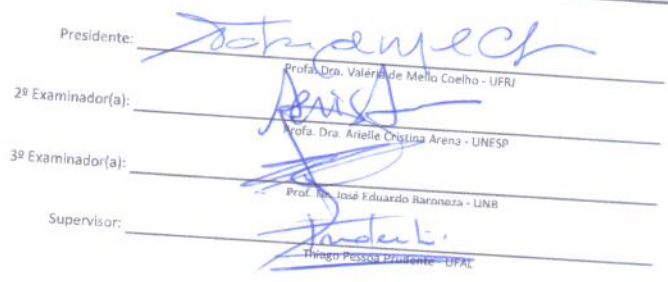 Presidente:
Profa. Dra. Valéria de Mello Coelho - UFRJ
2ª Examinador(a):
Profa. Dra. Arielle Cristina Arena - UNESP
3ª Examinador(a):
Prof. Dr. José Eduardo Baroneza - UNB
Supervisor:
Thiago Pessoa Prudente - UFAL